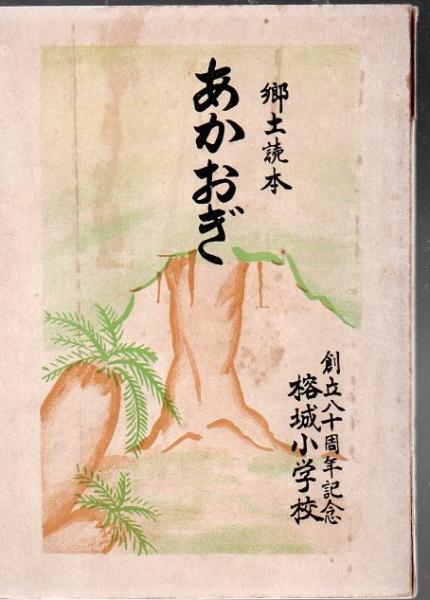 郷土読本
あかおぎ
創立八十周年記念
榕城小学校